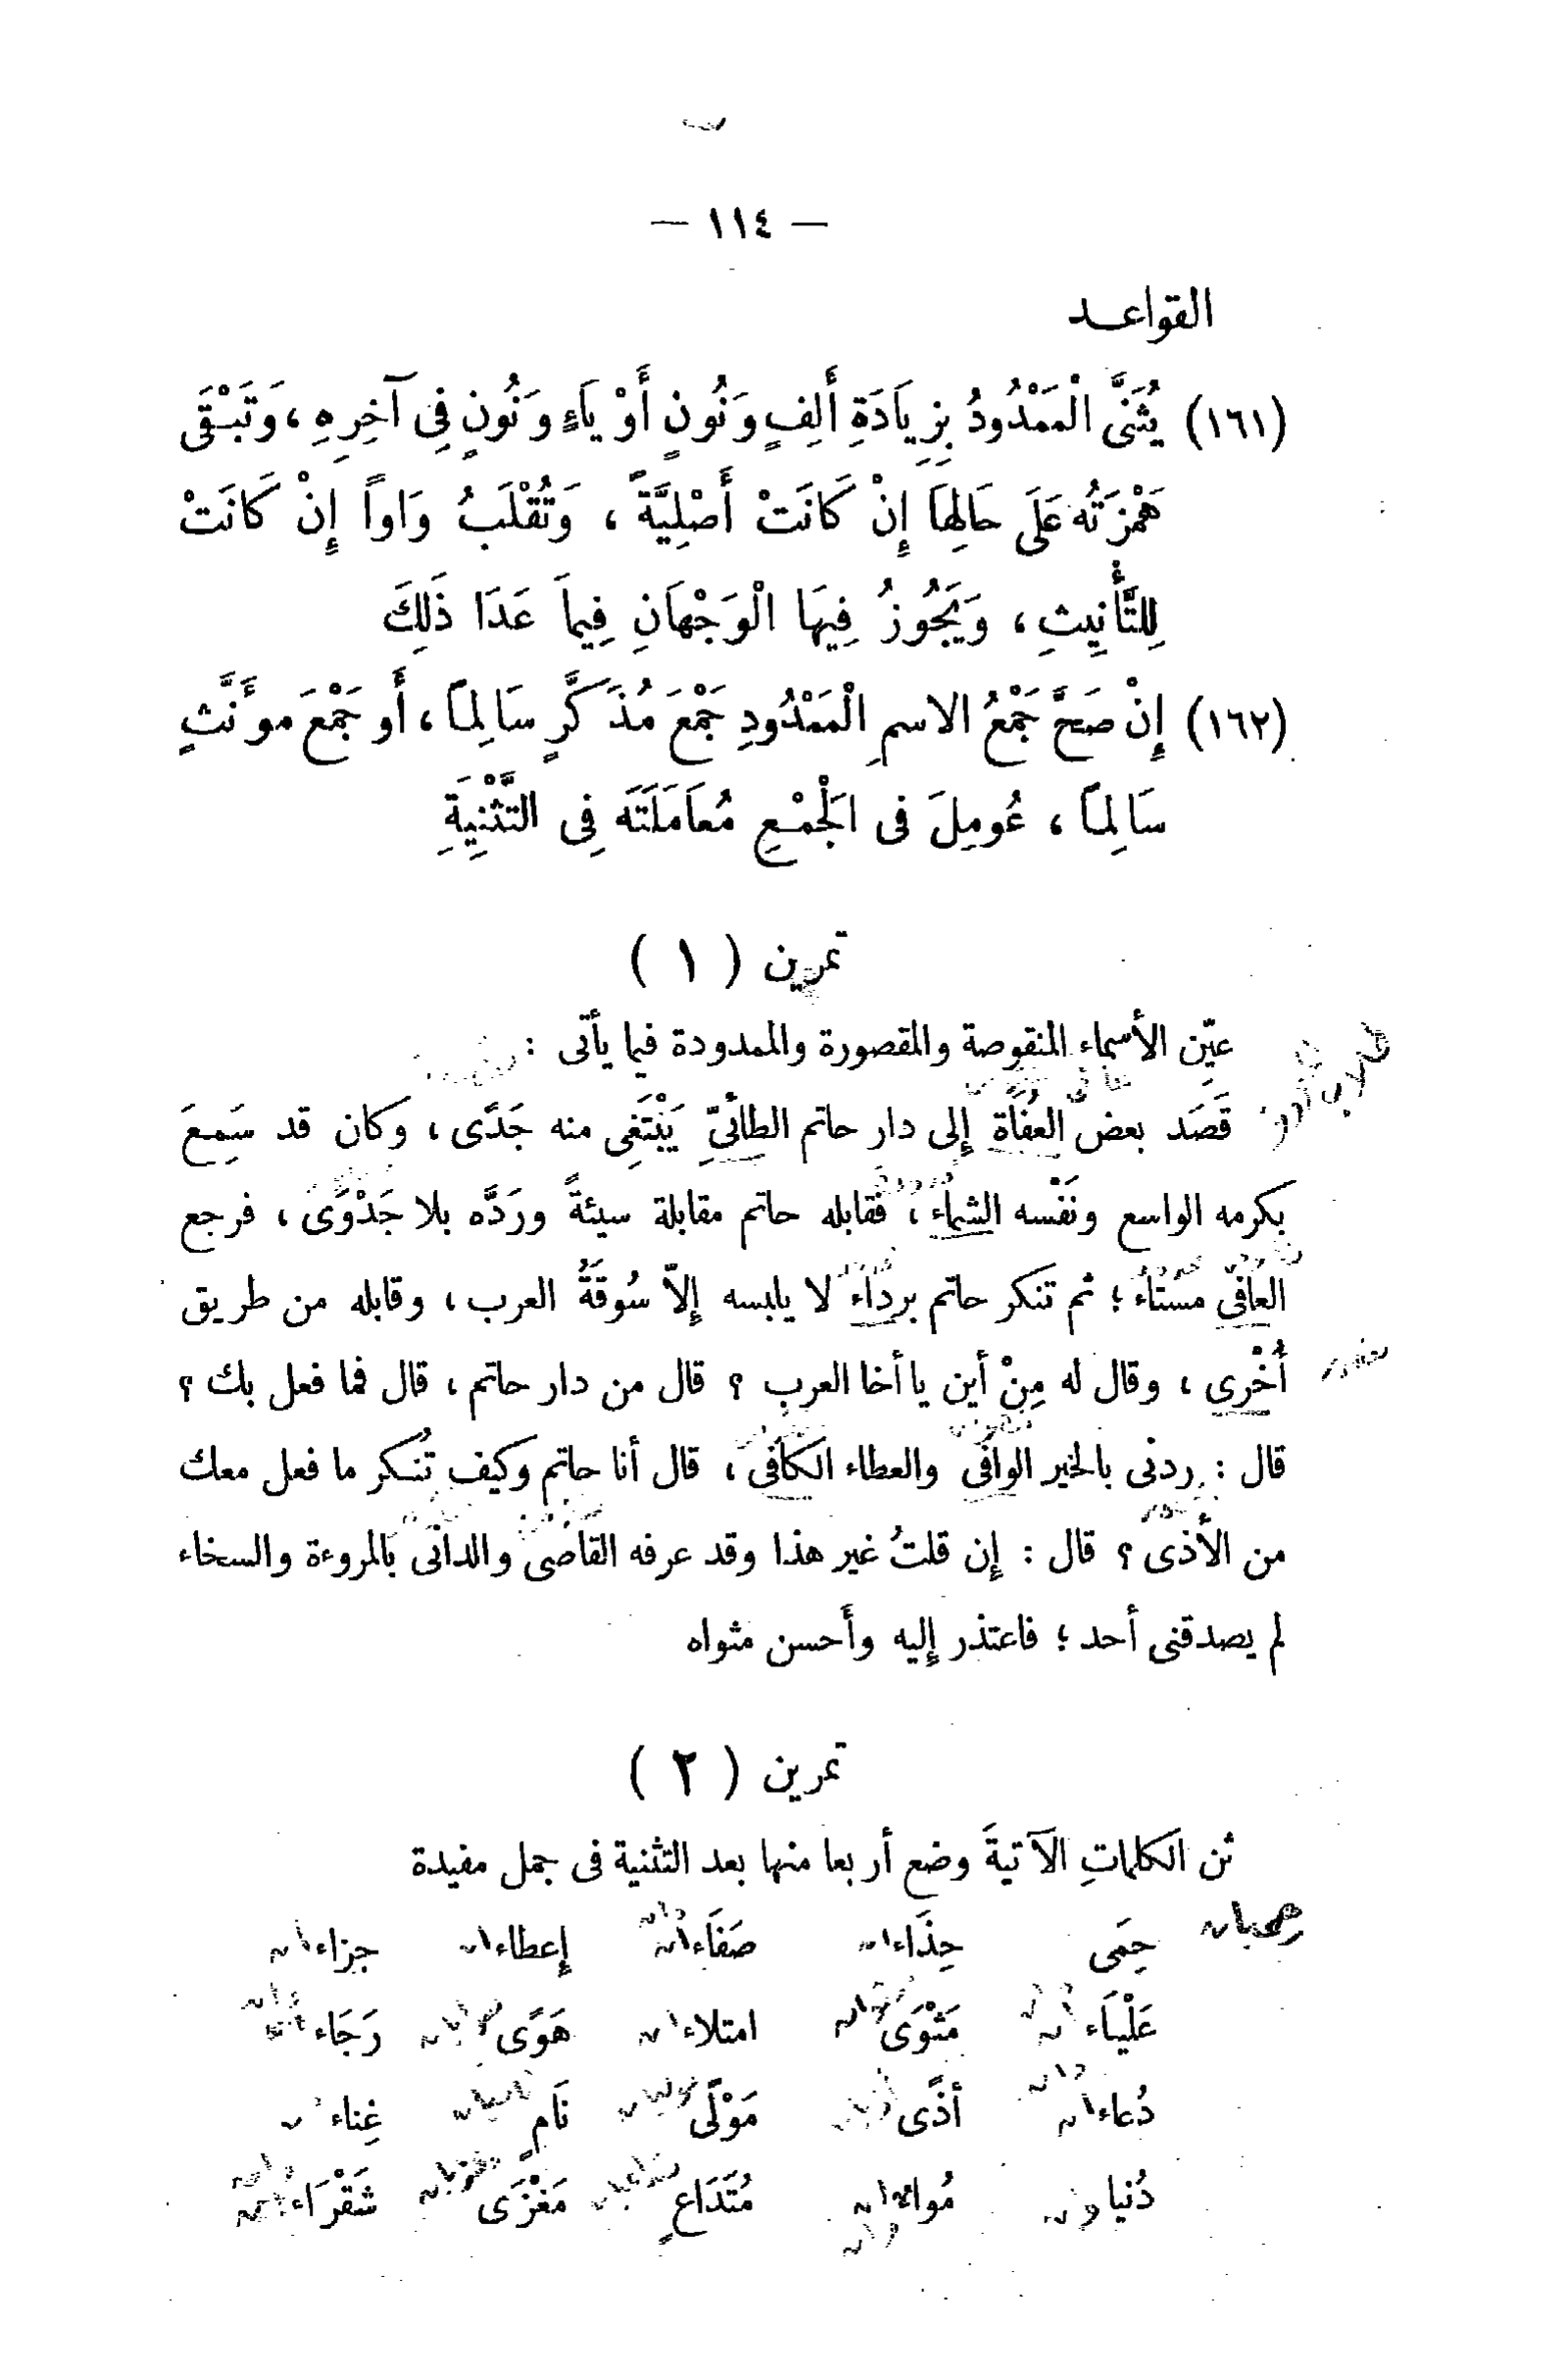 — ١١٤ —
القواعـد
(١٦١) يُثَنَّى الْمَمْدُودُ بِزِيَادَةِ أَلِفٍ وَنُونٍ أَوْ يَاءٍ وَنُونٍ فِى آخِرِهِ ، وَتَبْـقَى
هَمْزَتُه عَلَى حَالِهَا إِنْ كَانَتْ أَصْلِيَّةً ، وَتُقْلَبُ وَاواً إِنْ كَانَتْ
لِلتَّأْنِيثِ ، وَيَجُوزُ فِيهَا الْوَجْهَانِ فِيمَا عَدَا ذَلِكَ
(١٦٢) إِنْ صَحَّ جَمْعُ الاسمِ الْمَمْدُودِ جَمْعَ مُذَكَّرٍ سَالِمًا ، أَو جَمْعَ موَنَّثٍ
سَالِمًا ، عُومِلَ فى الَجْمْـعِ مُعَامَلَتَه فِى التَّثْنِيَةِ
تمرين ( ١ )
عيّن الأسماء المنقوصة والمقصورة والممدودة فيما يأتى :
قَصَد بعض العُفَاة إلى دار حاتم الطائىّ يَبْتَغِى منه جَدًى ، وكان قد سَمِـعَ
بكرمه الواسع ونَفْسه الشماء ، فقابله حاتم مقابلة سيئةً وردَّه بلا جَدْوَى ، فرجع
العافى مستاء ؛ ثم تنكر حاتم برداء لا يلبسه إلاّ سُوقَةُ العرب ، وقابله من طريق
أُخْرى ، وقال له مِنْ أين يا أخا العربِ ؟ قال من دار حاتم ، قال فما فعل بك ؟
قال : ردنى بالخير الوافى والعطاء الكافى ، قال أنا حاتم وكيف تُنـكر ما فعل معك
من الأذى ؟ قال : إن قلتُ غير هذا وقد عرفه القاصى والدانى بالمروءة والسخاء
لم يصدقنى أحد ؛ فاعتذر إليه وأَحسن مثواه
تمرين ( ٢ )
ثن الكلماتِ الآتيةَ وضع أربعا منها بعد التثنية فى جمل مفيدة
حِمَى حِذَاء صَفَاء إعطاء جزاء
عَلْيَاء مَثْوَى امتلاء هَوًى رَجَاء
دُعاء أذًى مَوْلًى نَامٍ غِناء
دُنيا مُواء مُتَدَاعٍ مَغْزَى شَقْرَاء